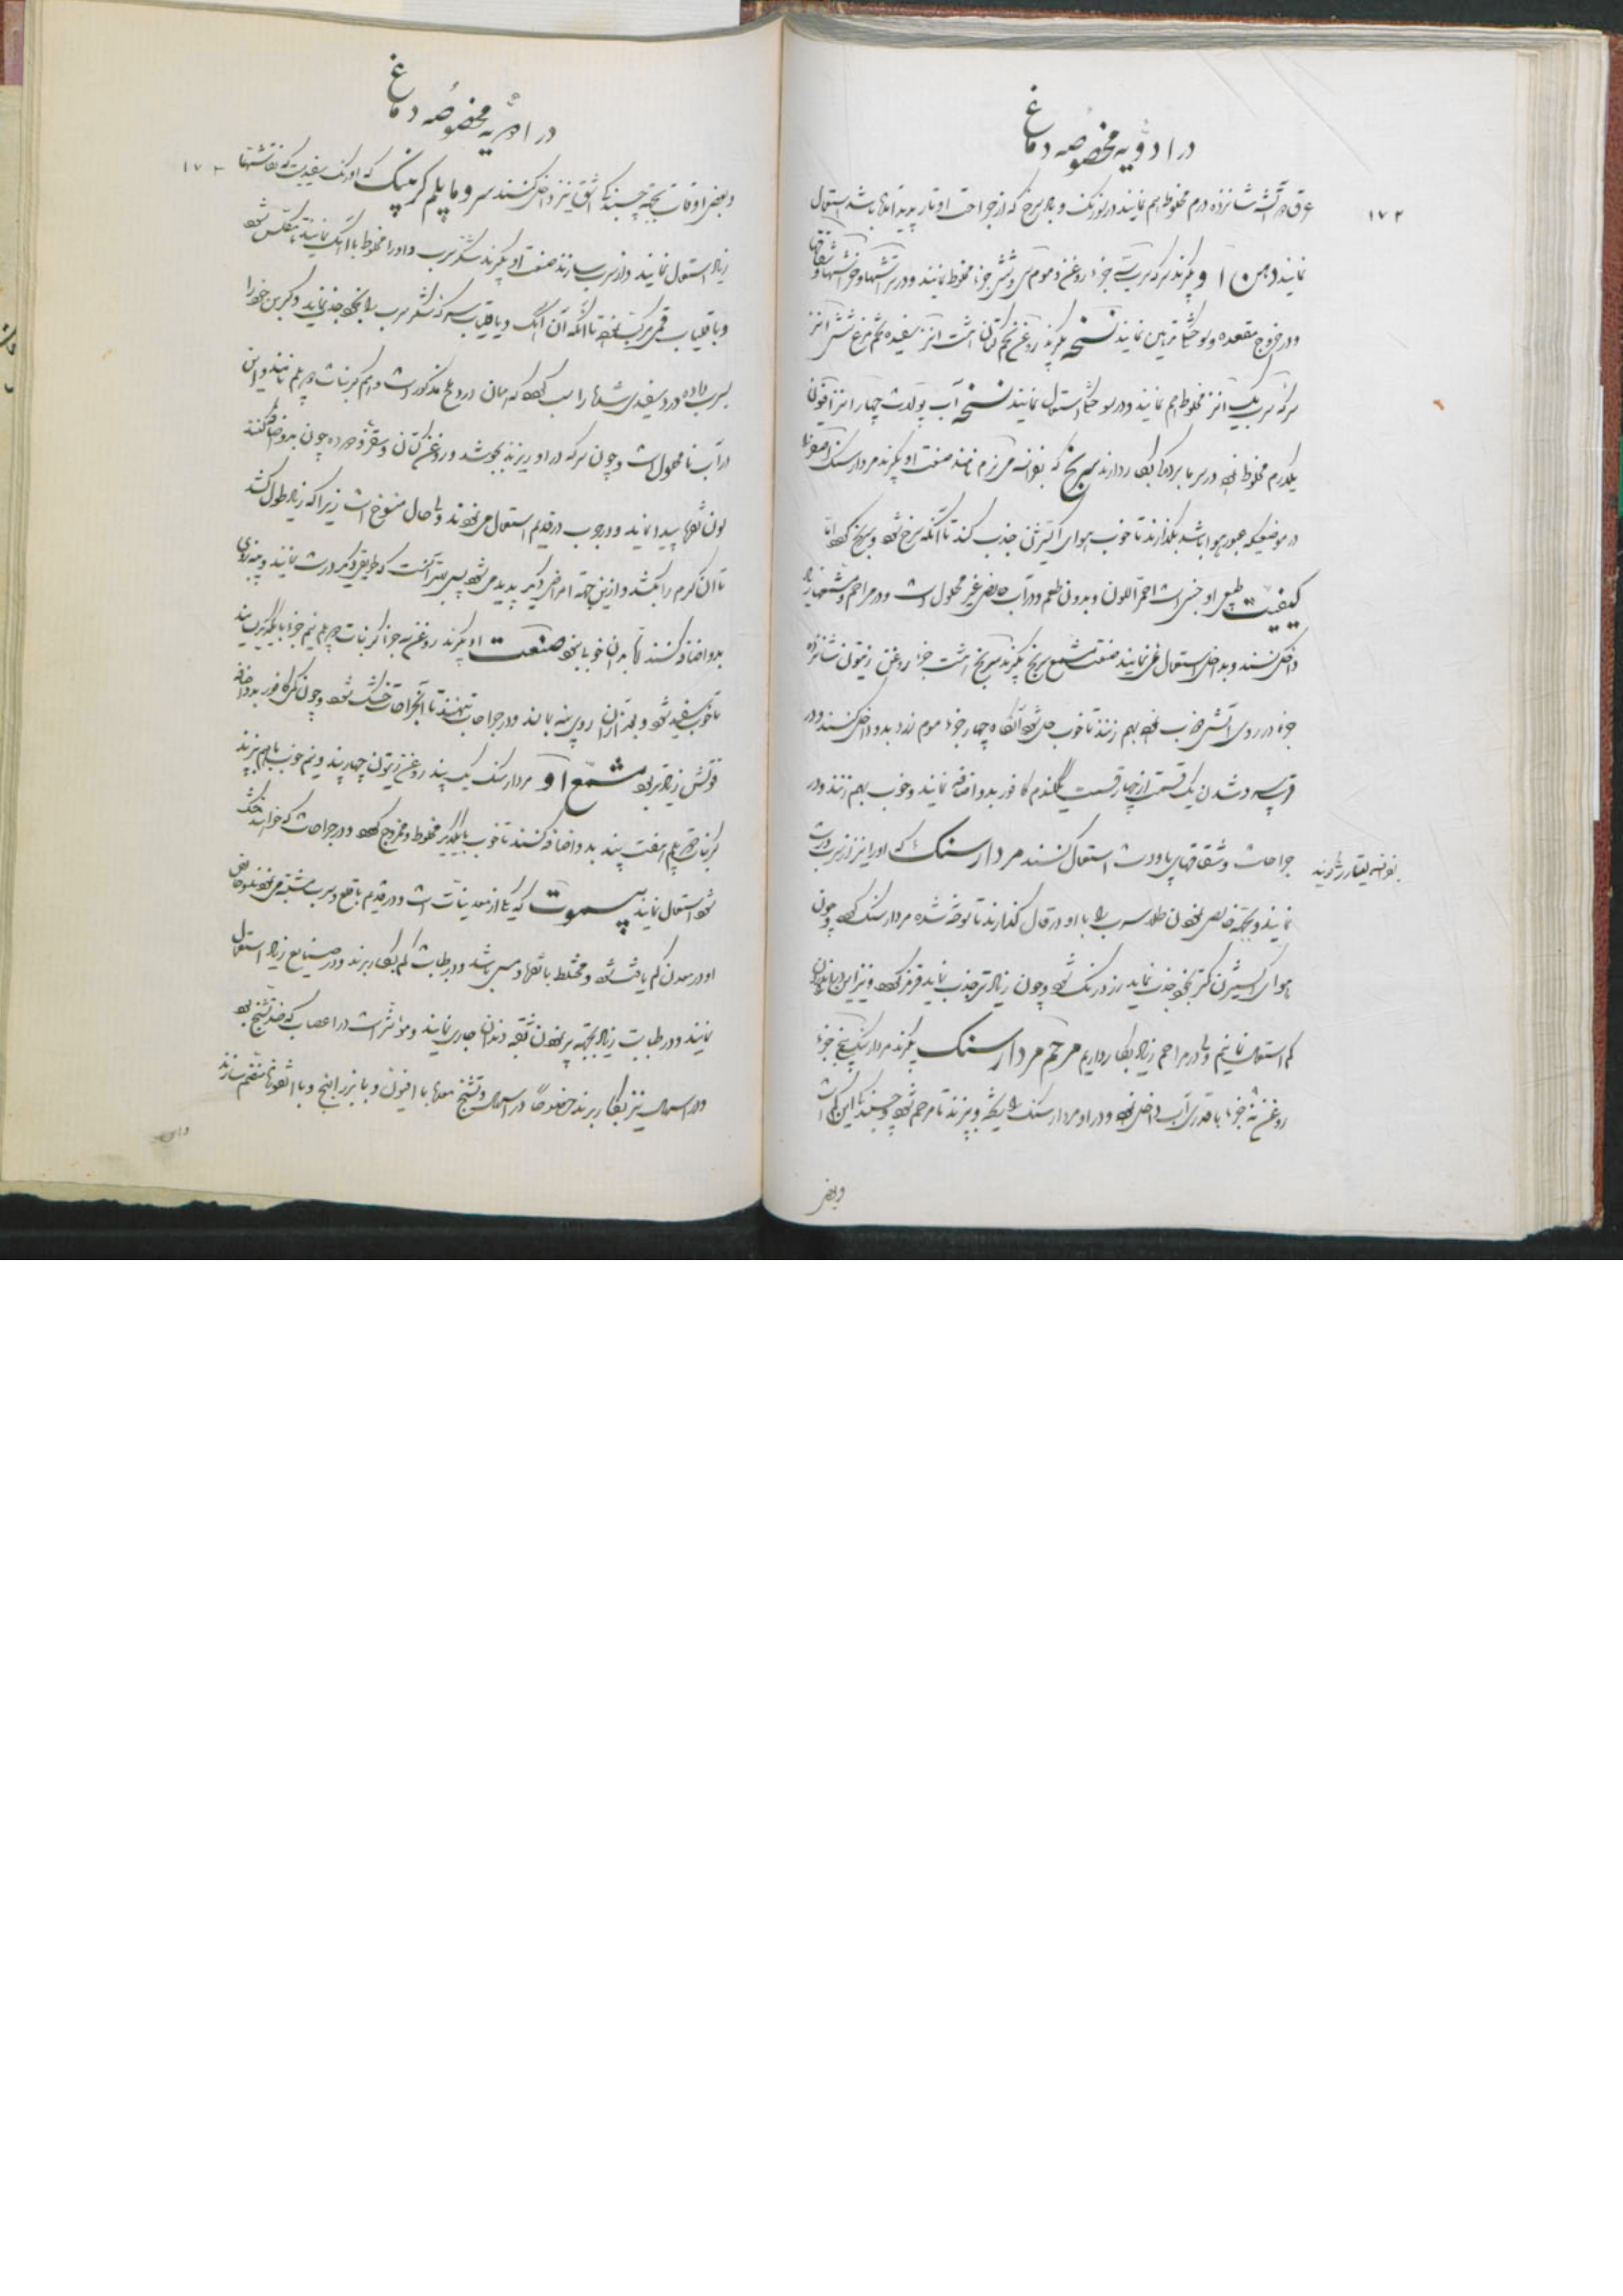 در ادویه مخصوصه دماغ
۱۷۲
عرق آتشه شانزده درم مخلوط هم نمایند در نوزنک و باد سرخ که از جراحت او تار پدید آمده باشد استعمال
نمایند دهن او بگیرند سرکه سرب جزء روغن و موم سی و شش جزء مخلوط نمایند و در ترشتها و خراشتها و شقاقها
و در خروج مقعده و بواسیر تدهین نمایند نسخه بگیرند روغن تخم کتان هشت انز سفیده تخم مرغ شش انز
سرکه سرب یک انز مخلوط هم نمایند و در سوختگی استعمال نمایند نسخه آب پولات چهار انز افیون
یکدرم مخلوط نموده در سرمابردگی بکار دارند سرنج که بفرانسه مینیم نامند صنعت او بگیرند مردارسنک
در موضعیکه عبور هوا باشد بگذارند تا خوب هوای اکسیژن جذب کند تا آنکه سرخ شود و سرنج گردد اما
کیفیت طبیعی او جنسی است احمر اللون و بدون طعم و در آب خالص غیر محلول است و در مراهم و مشمعها زیاد
داخل کنند و بداخل استعمال نمی نمایند صنعت مشمع سرنج بگیرند سرنج هشت جزء روغن زیتون شانزده
جزء در روی آتش خوب بهم زنند تا خوب حل شود آنگاه چهار جزء موم زرد بدو داخل کنند و در
قریب سرد شدن یک قسمت از چهار قسمت یکگندم کافور بدو اضافه نمایند و خوب بهم زنند و در
جراحات و شقاقهای پا و دست استعمال کنند مردارسنک که او را نیز از سرب درست
بفرانسه لیتارژ گویند
نمایند و بجهة خالص نمودن طلا سرب را با او در قال گذارند تا سوخته شده مردارسنک گردد و چون
هوای اکسیژن کمتر بخود جذب نماید زرد رنگ شود و چون زیادتر جذب نماید قرمز گردد و نیز این را
کم استعمال نمائیم ولی در مراهم زیاد بکار داریم مرهم مردارسنک بگیرند مردارسنک پنج جزء
روغن نه جزء با قدری آب داخل نموده و در او مردارسنک را ریخته و بپزند تا مرهم شود و چسبندگی این کم است
وبعض
در ادویه مخصوصه دماغ
۱۷۳
و بعض اوقات بجهة چسبندگی اشق نیز داخل کنند سروما پلم کرمپنیک که او رنگ سفیدیست که نقاشها
زیاد استعمال نمایند و از سرب سازند صنعت او بگیرند شکر سرب و او را مخلوط با آهک نمایند تا متکلس شود
و با قلیاب قمی مرکب نموده تا آنکه آن آهک و یا قلیاب سرکه شکر سرب را بخود جذب نماید و کربن خود را
بسرب داده در سفیدی شدن را سبب گردد که میان درودگر مذکور است و اسم کربنات دو پلم نامند و این
در آب نامحلول است و چون سرکه در او ریزند بجوشد و روغن کتان و سقز خورده چون بدو اضافه کنند
لون نقره پیدا نماید و در جرب در قدیم استعمال مینمودند ولی حال منسوخ است زیرا که زیاد طول کشد
تا آن کرم را بکشد و ازین جهة امراض دیگر پدید می شود پس بهتر آنست که طریق دیگر درست نمایند
بدو اضافه کنند تا بدان خوب بخود صنعت او بگیرند روغن سه جزء کربنات دو پلم نیم جزء با یکدیگر بسایند
تا خوب سفید شود و بعد از آن روی پنبه بمالند و در جراحات نهند تا آنجراحات خشک شود و چون کمی کافور بدو اضافه
قوتش زیادتر بود مشمع او مردارسنک یک پند روغن زیتون چهار پند و نیم خوب با هم بپزند
کربنات دو پلم هفت پند بدو اضافه کنند تا خوب بایکدیگر مخلوط و ممزوج گردد و در جراحات که خواهند خشک
شود استعمال نمایند بیسموت که یکی از معدنیات است و در قدیم با قلع و سرب مشتبه می نمودند
او در معدن کم یافت شود و مختلط با نقره و مس باشد و در طبابت کم بکار برند و در صنایع زیاد استعمال
نمایند و در طبابت زیاد بجهة پر نمودن ثقبه دندان جاری نمایند و مؤثر است در اعصاب که ضد تشنج بود
و در اسهال نیز بکار برند خصوصا در اسهال و تشنج معدها با افیون و با بزر البنج و با